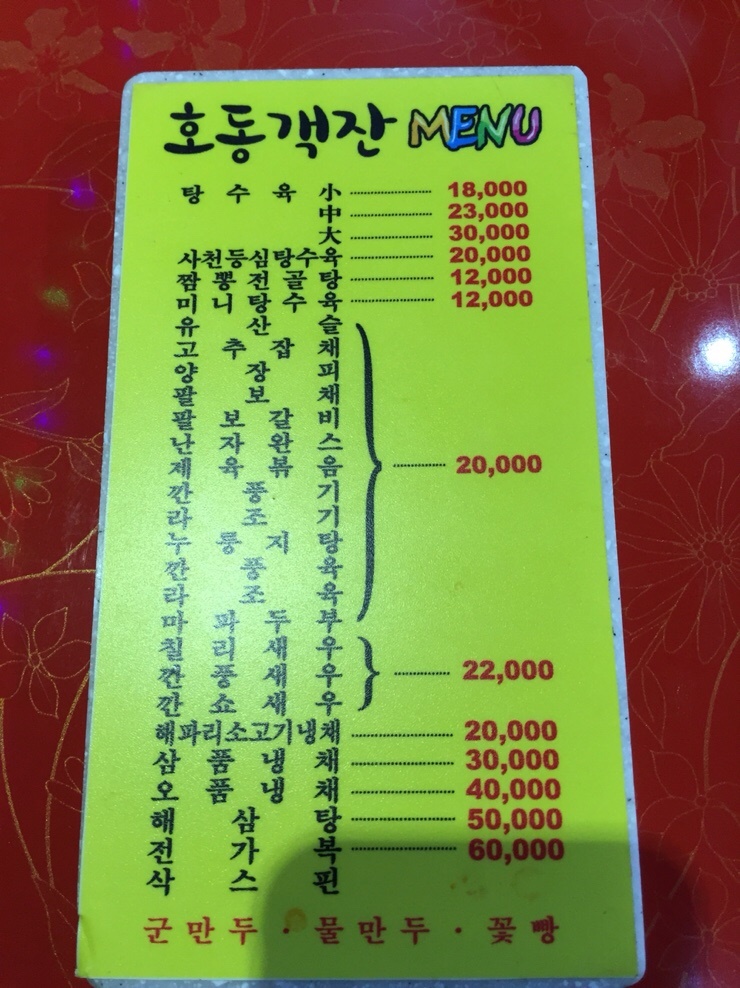 호동객잔 MENU
탕수육 小 18,000
中 23,000
大 30,000
사천등심탕수육 20,000
짬뽕전골탕 12,000
미니탕수육 12,000
유산슬
고추잡채
양장피
팔보채
팔보갈비
난자완스
제육볶음 20,000
깐풍기
라조기
누룽지탕
깐풍육
라조육
마파두부
칠리새우
깐풍새우 22,000
깐쇼새우
해파리소고기냉채 20,000
삼품냉채 30,000
오품냉채 40,000
해삼탕 50,000
전가복 60,000
삭스핀
군만두 · 물만두 · 꽃빵